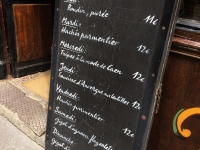 Boudin, purée 11€
Mardi:
Hachis parmentier 12€
Mercredi:
Tripes à la mode de Caen 12€
Jeudi:
Saucisse d'Auvergne aux lentilles 12€
Vendredi:
Hachis parmentier 12€
Samedi:
Gigot d'agneau flageolets
Dimanche
Gigot d'